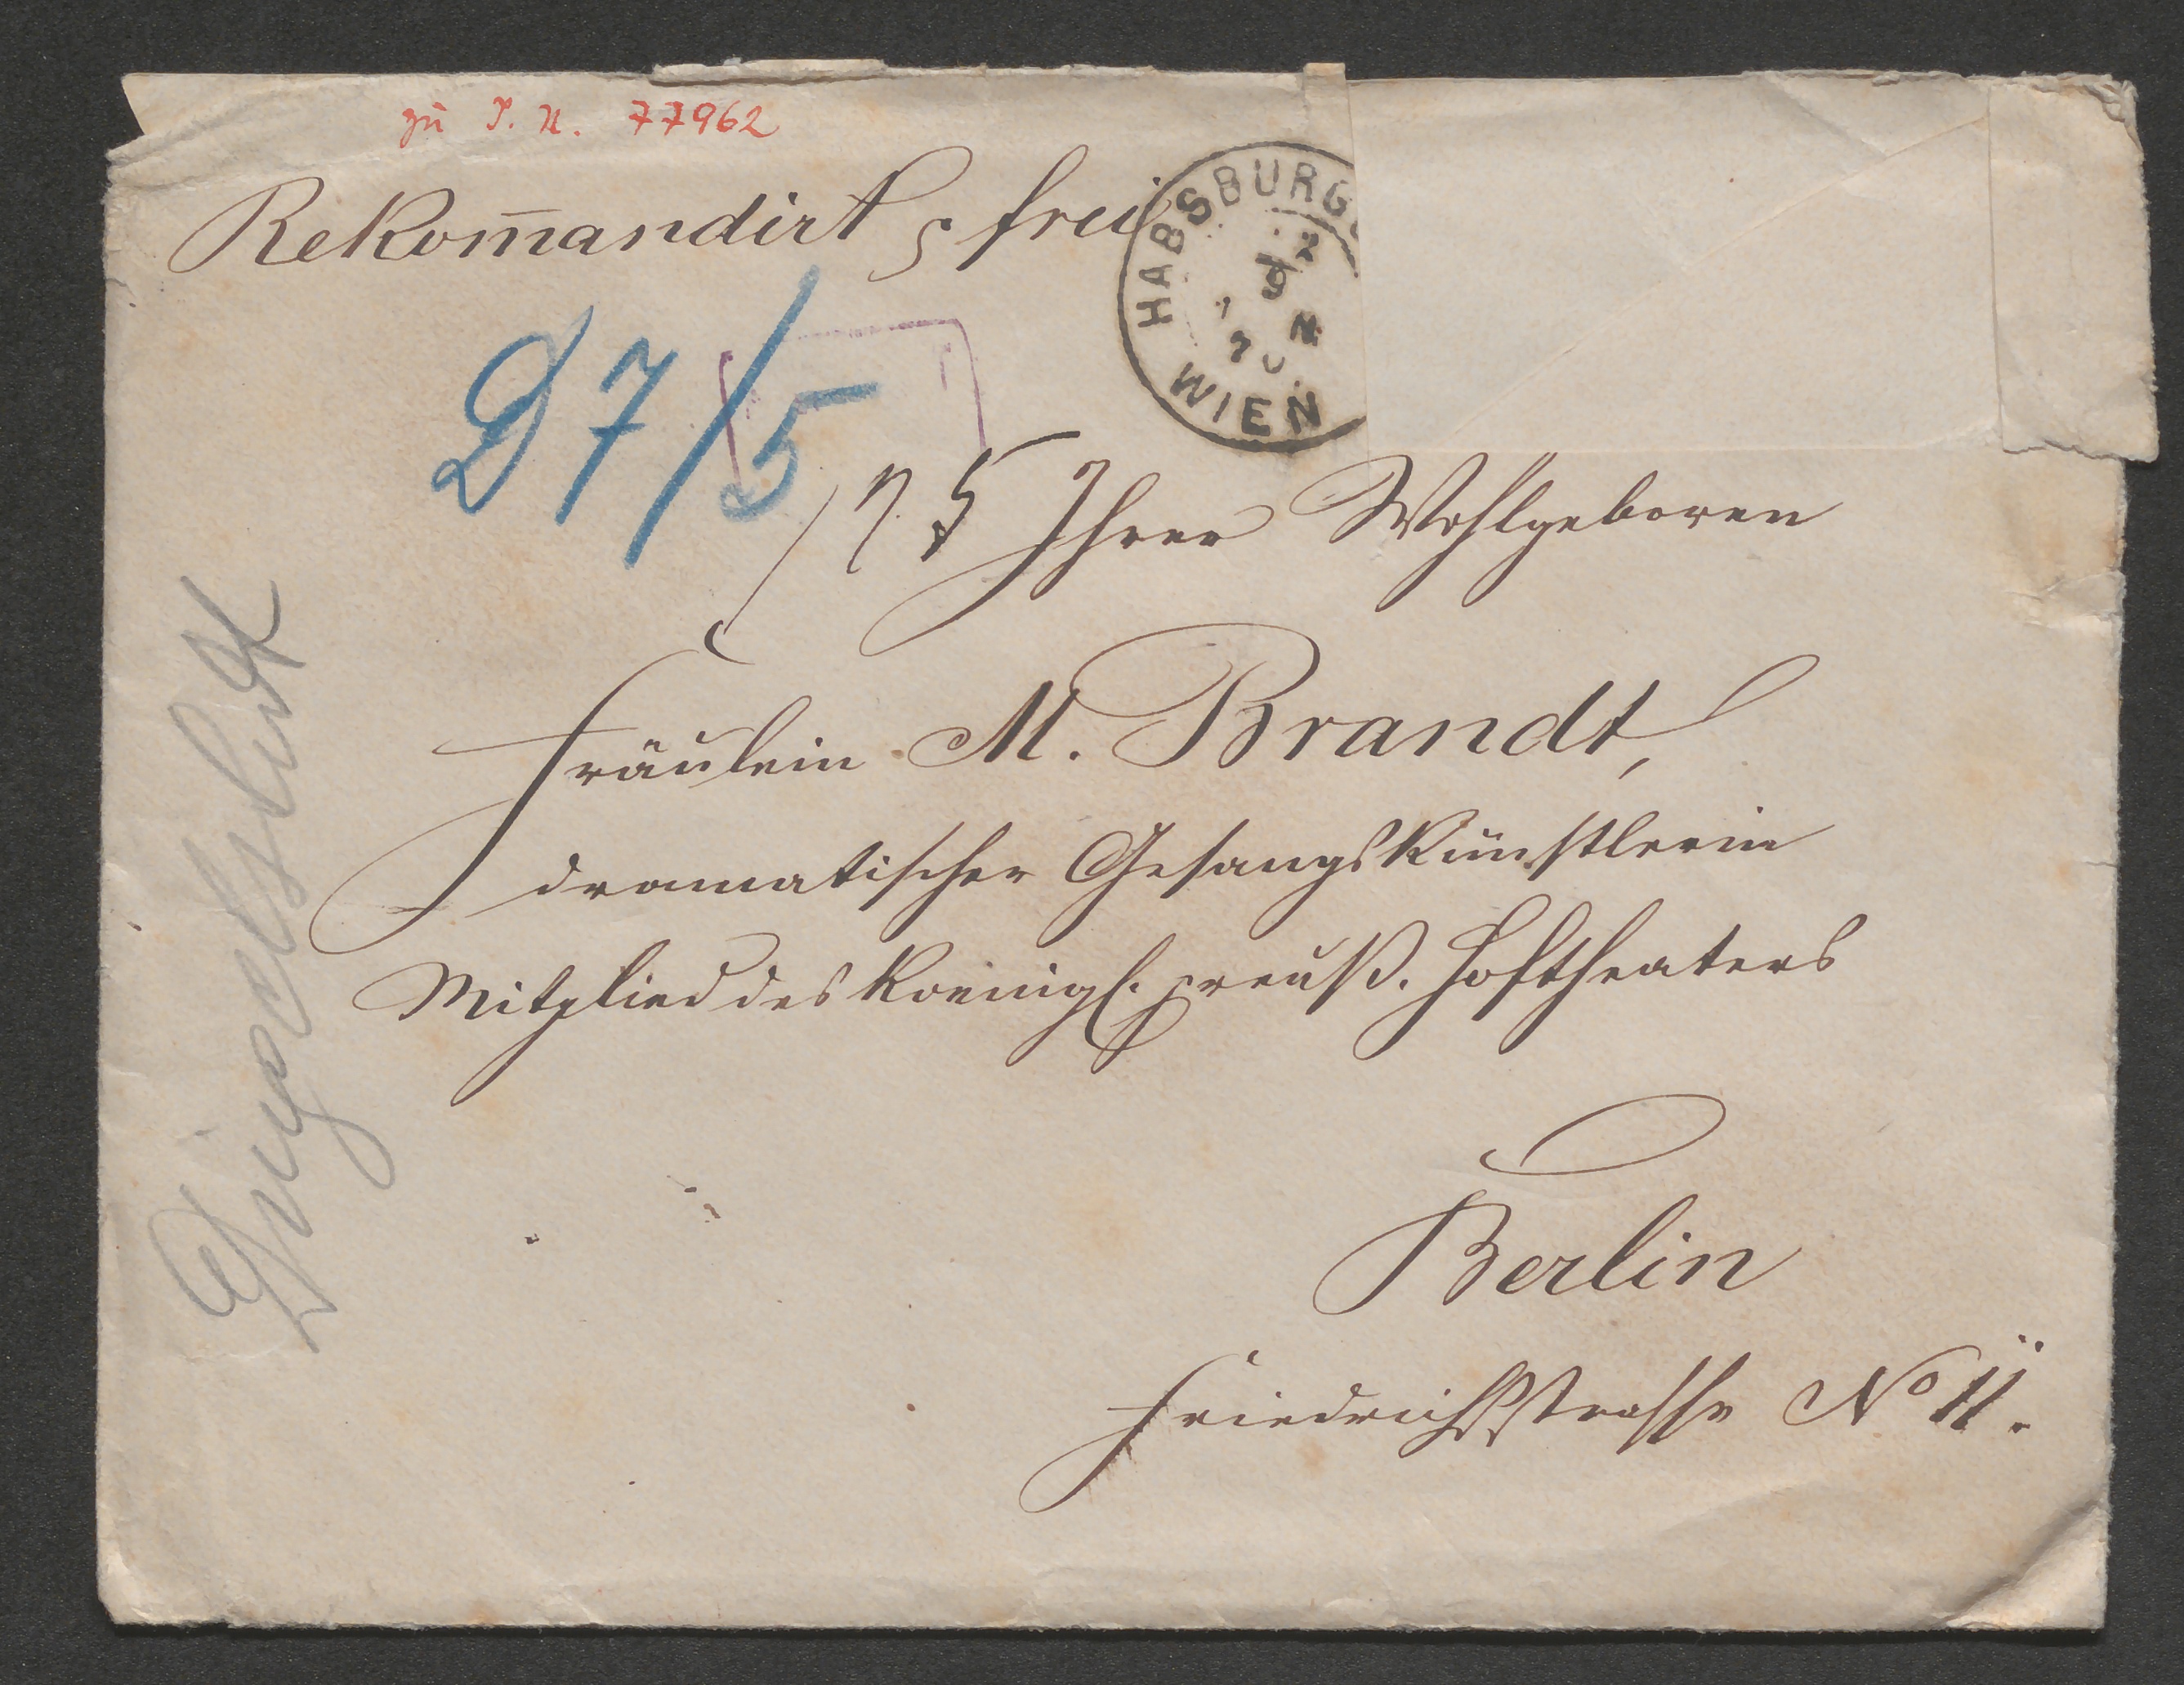 zu I. N. 77962
Rekom̅andirt, frei
HABSBURG
WIEN
D 7/5
175
Ihrer Wohlgeboren
Fräulein M. Brandt,
dramatischer Gesangskünstlerin
Mitglied des koenigl. preuß. Hoftheaters
Berlin
Friedrichsstrasse No 11.
Dingelstedt